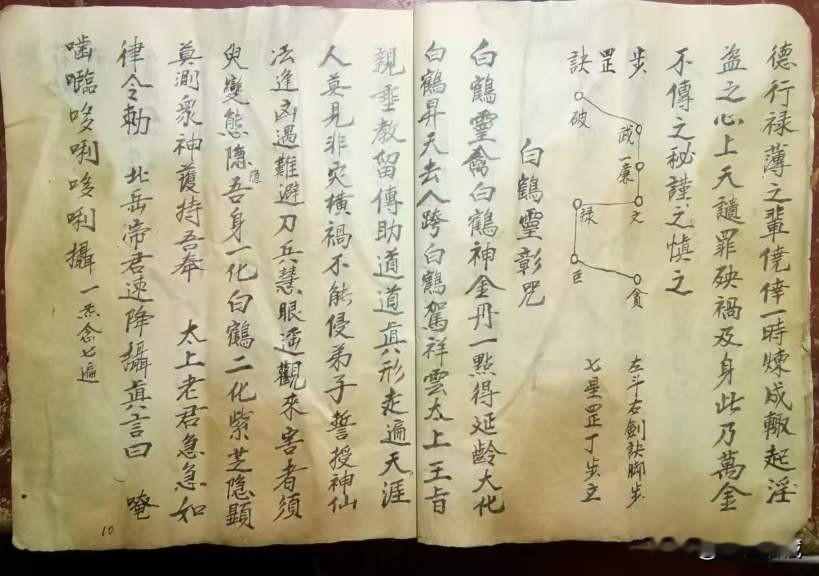 德行禄薄之輩僥倖一時煉成輒起淫
盗之心上天譴罪殃禍及身此乃萬金
不傳之秘謹之慎之
步罡訣
破
武
廉
文
禄
巨
貪
左斗右劍訣脚步
七星罡丁步立
白鶴靈彰咒
白鶴靈禽白鶴神金丹一點得延齡大化
白鶴昇天去人跨白鶴駕祥雲太上王旨
親垂教留傳助道道真形走遍天涯
人莫見非灾橫禍不能侵弟子誓授神仙
法逢凶遇難避刀兵慧眼遥觀來害者須
臾變態隐吾身一化白鶴二化紫芝隐顕
莫測衆神護持吾奉 太上老君急急如
律令勅 北岳帝君速降攝真言曰 唵
嚙囄哆唎哆唎攝 一炁念七遍
10